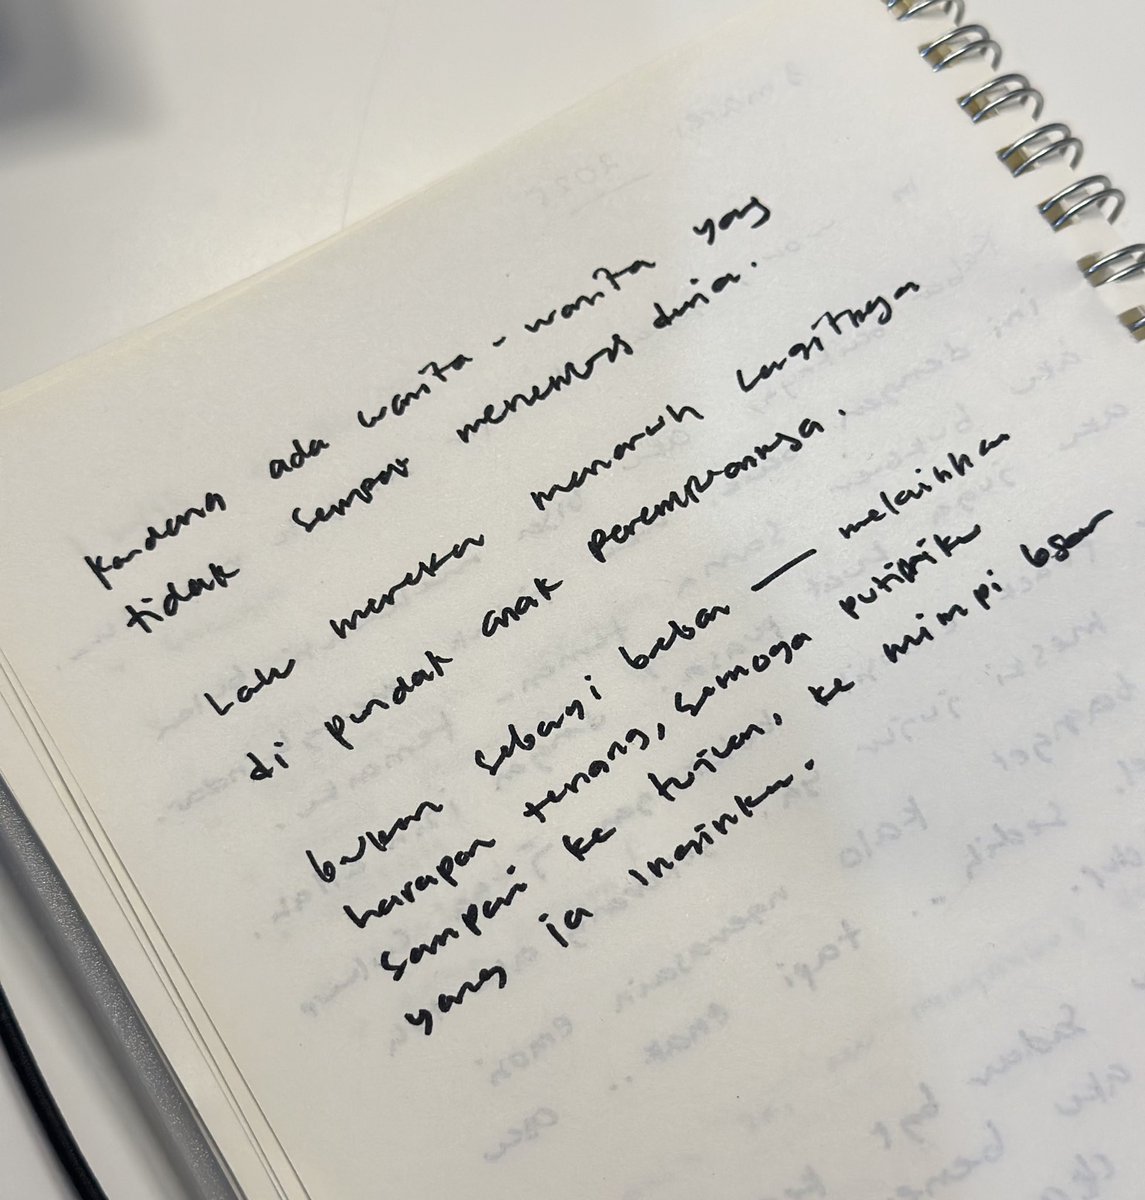 kadang ada wanita-wanita yang
tidak sempat menembus dunia.
Lalu mereka menaruh langitnya
di pundak anak perempuannya.
bukan sebagai beban — melainkan
harapan tenang, semoga putriku
sampai ke tujuan, ke mimpi besar
yang ia inginkan.